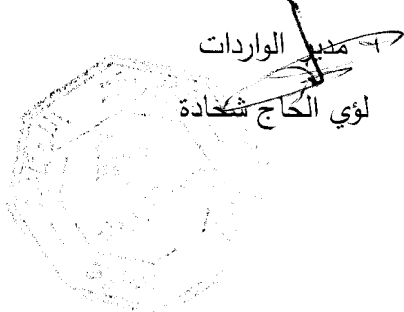 مدير الواردات
لؤي الحاج شحادة